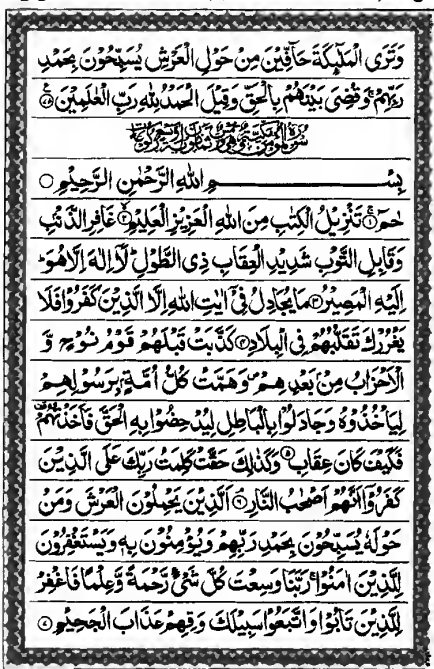 وَتَرَى الْمَلٰٓئِكَةَ حَآفِّيْنَ مِنْ حَوْلِ الْعَرْشِ يُسَبِّحُوْنَ بِحَمْدِ
رَبِّهِمْ ۚ وَقُضِيَ بَيْنَهُمْ بِالْحَقِّ وَقِيْلَ الْحَمْدُ لِلّٰهِ رَبِّ الْعٰلَمِيْنَ ۝۷۵
سُوْرَةُ الْمُؤْمِنِ مَكِّيَّةٌ وَّهِيَ
بِسْمِ اللهِ الرَّحْمٰنِ الرَّحِيْمِ ۝
حٰمٓ ۝۱ تَنْزِيْلُ الْكِتٰبِ مِنَ اللهِ الْعَزِيْزِ الْعَلِيْمِ ۝۲ غَافِرِ الذَّنْۢبِ
وَقَابِلِ التَّوْبِ شَدِيْدِ الْعِقَابِ ذِى الطَّوْلِ ؕ لَاۤ اِلٰهَ اِلَّا هُوَ ؕ
اِلَيْهِ الْمَصِيْرُ ۝۳ مَا يُجَادِلُ فِيْۤ اٰيٰتِ اللهِ اِلَّا الَّذِيْنَ كَفَرُوْا فَلَا
يَغْرُرْكَ تَقَلُّبُهُمْ فِى الْبِلَادِ ۝۴ كَذَّبَتْ قَبْلَهُمْ قَوْمُ نُوْحٍ وَّ
الْاَحْزَابُ مِنْۢ بَعْدِهِمْ ۪ وَهَمَّتْ كُلُّ اُمَّةٍۭ بِرَسُوْلِهِمْ
لِيَاْخُذُوْهُ وَجَادَلُوْا بِالْبَاطِلِ لِيُدْحِضُوْا بِهِ الْحَقَّ فَاَخَذْتُهُمْ
فَكَيْفَ كَانَ عِقَابِ ۝۵ وَكَذٰلِكَ حَقَّتْ كَلِمَتُ رَبِّكَ عَلَى الَّذِيْنَ
كَفَرُوْۤا اَنَّهُمْ اَصْحٰبُ النَّارِ ۝۶ اَلَّذِيْنَ يَحْمِلُوْنَ الْعَرْشَ وَمَنْ
حَوْلَهٗ يُسَبِّحُوْنَ بِحَمْدِ رَبِّهِمْ وَيُؤْمِنُوْنَ بِهٖ وَيَسْتَغْفِرُوْنَ
لِلَّذِيْنَ اٰمَنُوْا ۚ رَبَّنَا وَسِعْتَ كُلَّ شَيْءٍ رَّحْمَةً وَّعِلْمًا فَاغْفِرْ
لِلَّذِيْنَ تَابُوْا وَاتَّبَعُوْا سَبِيْلَكَ وَقِهِمْ عَذَابَ الْجَحِيْمِ ۝۷